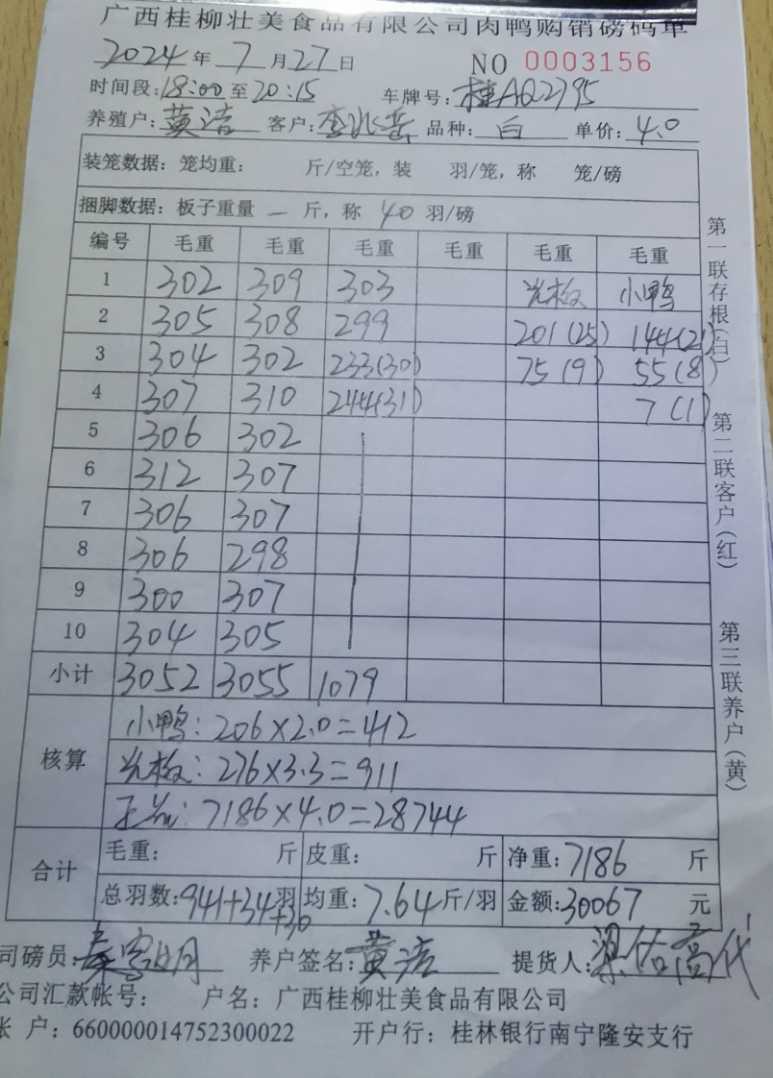 广西桂柳壮美食品有限公司肉鸭购销磅码单
2024年7月27日 NO 0003156
时间段:18:00至20:15 车牌号:桂AQ2795
养殖户:黄洁 客户: 品种:白 单价:4.0
装笼数据:笼均重: 斤/空笼,装 羽/笼,称 笼/磅
捆脚数据:板子重量 一 斤,称 40 羽/磅
编号 毛重 毛重 毛重 毛重 毛重 毛重
1 302 309 303 光板 小鸭
2 305 308 299 201(25) 144(21)
3 304 302 233(30) 75(9) 55(8)
4 307 310 244(31) 7(1)
5 306 302
6 312 307
7 306 307
8 306 298
9 300 307
10 304 305
小计 3052 3055 1079
核算
小鸭:206×2.0=412
光板:276×3.3=911
正品:7186×4.0=28744
合计
毛重: 斤 皮重: 斤 净重:7186 斤
总羽数:941+34+30羽 均重:7.64斤/羽 金额:30067元
司磅员: 养户签名:黄洁 提货人:
公司汇款帐号: 户名:广西桂柳壮美食品有限公司
账 户:660000014752300022 开户行:桂林银行南宁隆安支行
第一联存根(白)
第二联客户(红)
第三联养户(黄)